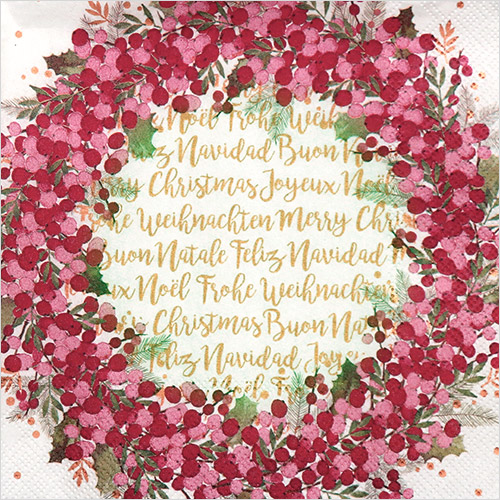 Noël Frohe Weih
liz Navidad Buon N
erry Christmas Joyeux Noël
Frohe Weihnachten Merry Chris
Buon Natale Feliz Navidad M
ux Noël Frohe Weihnachten
Christmas Buon Nata
Feliz Navidad Joye
Noël Fr